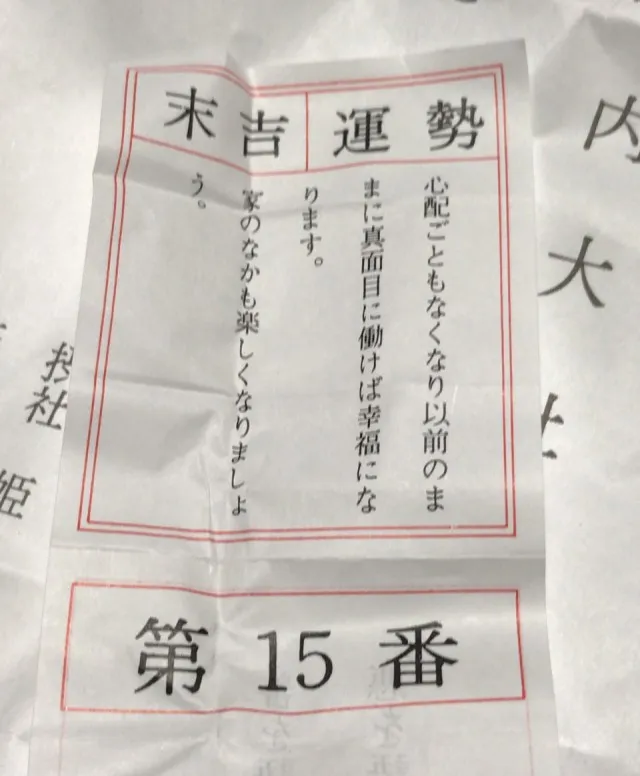 末吉 運勢
心配ごともなくなり以前のま
まに真面目に働けば幸福にな
ります。
家のなかも楽しくなりましょ
う。
第15番
内
大
社
姫